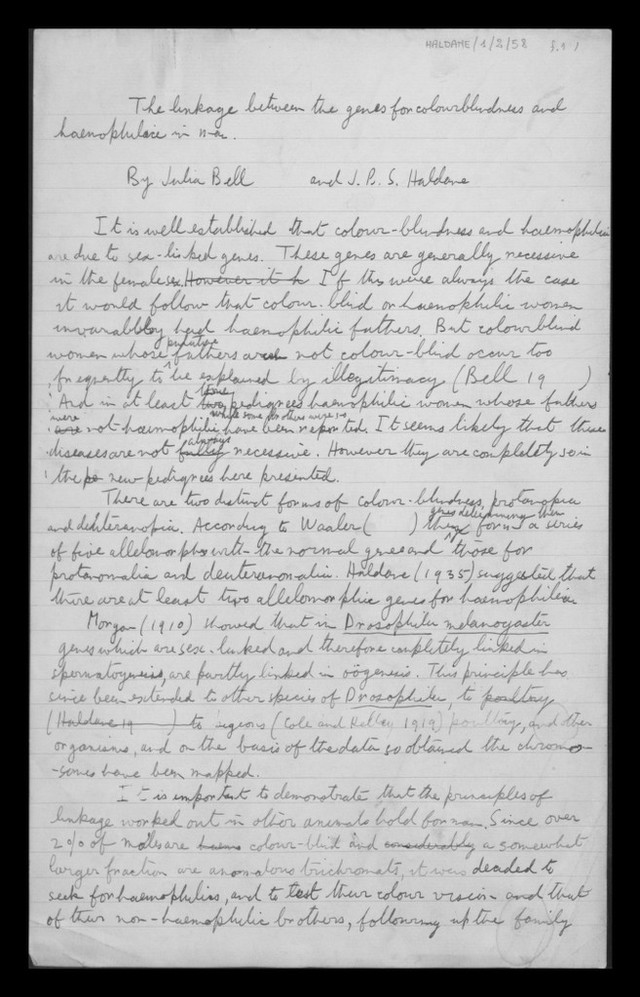 HALDANE/1/2/58 f.1
The linkage between the genes for colourblindness and
haemophilia in man.
By Julia Bell and J. B. S. Haldane
It is well established that colour-blindness and haemophilia
are due to sex-linked genes. These genes are generally recessive
in the female sex. However it is If this were always the case
it would follow that colour-blind or haemophilic women
invariably had haemophilic fathers. But colourblind
putative
women whose fathers are not colour-blind occur too
frequently to be explained by illegitimacy (Bell 19 )
three
And in at least two pedigrees haemophilic women whose fathers
were while some brothers were so
are not haemophilic have been reported. It seems likely that these
always
diseases are not fully recessive. However they are completely so in
the pe new pedigrees here presented.
There are two distinct forms of colour-blindness, protanopia
genes determining them
and deuteranopia. According to Waaler ( ) they form a series
of five allelomorphs with the normal gene and those for
protanomalia and deuteranomalia. Haldane (1935) suggested that
there are at least two allelomorphic genes for haemophilia
Morgan (1910) showed that in Drosophila melanogaster
genes which are sex-linked and therefore completely linked in
spermatogenesis, are partly linked in oögenesis. This principle has
since been extended to other species of Drosophila, to poultry
(Haldane 19 ) to pigeons (Cole and Kelley 1919) poultry, and other
organisms, and on the basis of the data so obtained the chromo-
-somes have been mapped.
It is important to demonstrate that the principles of
linkage worked out in other animals hold for man. Since over
2% of males are colour-blind and considerably a somewhat
larger fraction are anomalous trichromats, it was decided to
seek for haemophilics, and to test their colour vision and that
of their non-haemophilic brothers, following up the family